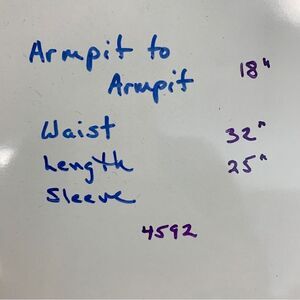 Armpit to
Armpit 18"
Waist 32"
Length 25"
Sleeve
4592